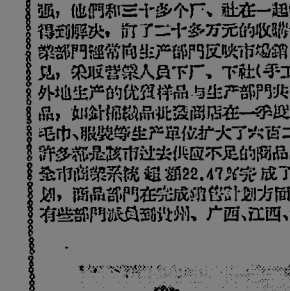 强，他們和三十多个厂、社在一起
得到解决，訂了二十多万元的收購
業部門經常向生产部門反映市場銷
見，采取营業人員下厂、下社(手工
外地生产的优質样品与生产部門共
品，如針棉織品批發商店在一季度
毛巾、服裝等生产單位扩大了六百二
許多都是該市过去供应不足的商品
全市商業系統超額22.47%完成了
划，商品部門在完成銷售計划方面
有些部門派員到貴州、广西、江西、